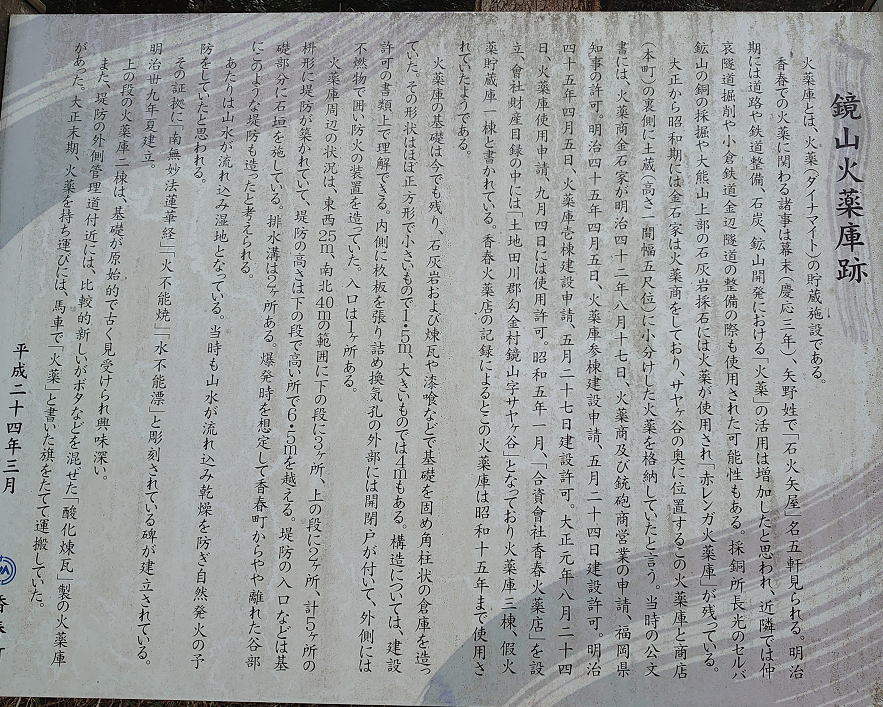 鏡山火薬庫跡
火薬庫とは、火薬(ダイナマイト)の貯蔵施設である。
香春での火薬に関わる諸事は幕末(慶応三年)、矢野姓で「石火矢屋」名五軒見られる。明治
期には道路や鉄道整備、石炭、鉱山開発における「火薬」の活用は増加したと思われ、近隣では仲
哀隧道掘削や小倉鉄道金辺隧道の整備の際も使用された可能性もある。採銅所長光のセルバ
鉱山の銅の採掘や大熊山上部の石灰岩採石には火薬が使用され「赤レンガ火薬庫」が残っている。
大正から昭和期には金石家は火薬商をしており、サヤヶ谷の奥に位置するこの火薬庫と商店
(本町)の裏側に土蔵(高さ一間幅五尺位)に小分けした火薬を格納していたと言う。当時の公文
書には、火薬商金石家が明治四十二年八月十七日、火薬商及び銃砲商営業の申請、福岡県
知事の許可。明治四十五年四月五日、火薬庫参棟建設申請、五月二十四日建設許可。明治
四十五年四月五日、火薬庫壱棟建設申請、五月二十七日建設許可。大正元年八月二十四
日、火薬庫使用申請、九月四日には使用許可。昭和五年一月、「合資會社香春火薬店」を設
立、會社財産目録の中には「土地田川郡勾金村鏡山字サヤヶ谷」となっており火薬庫三棟、假火
薬貯蔵庫一棟と書かれている。香春火薬店の記録によるとこの火薬庫は昭和十五年まで使用さ
れていたようである。
火薬庫の基礎は今でも残り、石灰岩および煉瓦や漆喰などで基礎を固め角柱状の倉庫を造っ
ていた。その形状はほぼ正方形で小さいもので1・5m、大きいものでは4mもある。構造については、建設
許可の書類上で理解できる。内側に杦板を張り詰め換気孔の外部には開閉戸が付いて、外側には
不燃物で囲い防火の装置を造っていた。入口は1ヶ所ある。
火薬庫周辺の状況は、東西25m、南北40mの範囲に下の段に3ヶ所、上の段に2ヶ所、計5ヶ所の
枡形に堤防が築かれていて、堤防の高さは下の段で高い所で6・5mを越える。堤防の入口などは基
礎部分に石垣を施している。排水溝は2ヶ所ある。爆発時を想定して香春町からやや離れた谷部
にこのような堤防も造ったと考えられる。
あたりは山水が流れ込み湿地となっている。当時も山水が流れ込み乾燥を防ぎ自然発火の予
防をしていたと思われる。
その証拠に「南無妙法蓮華経」「火不能焼」「水不能漂」と彫刻されている碑が建立されている。
明治卅九年夏建立。
上の段の火薬庫二棟は、基礎が原始的で古く見受けられ興味深い。
また、堤防の外側管理道付近には、比較的新しいがボタなどを混ぜた「酸化煉瓦」製の火薬庫
があった。大正末期、火薬を持ち運びには、馬車で「火薬」と書いた旗をたてて運搬していた。
平成二十四年三月
香春町